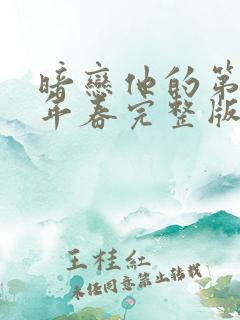 暗戀他的第
年春完整版
王桂紅
未经同意禁止转载